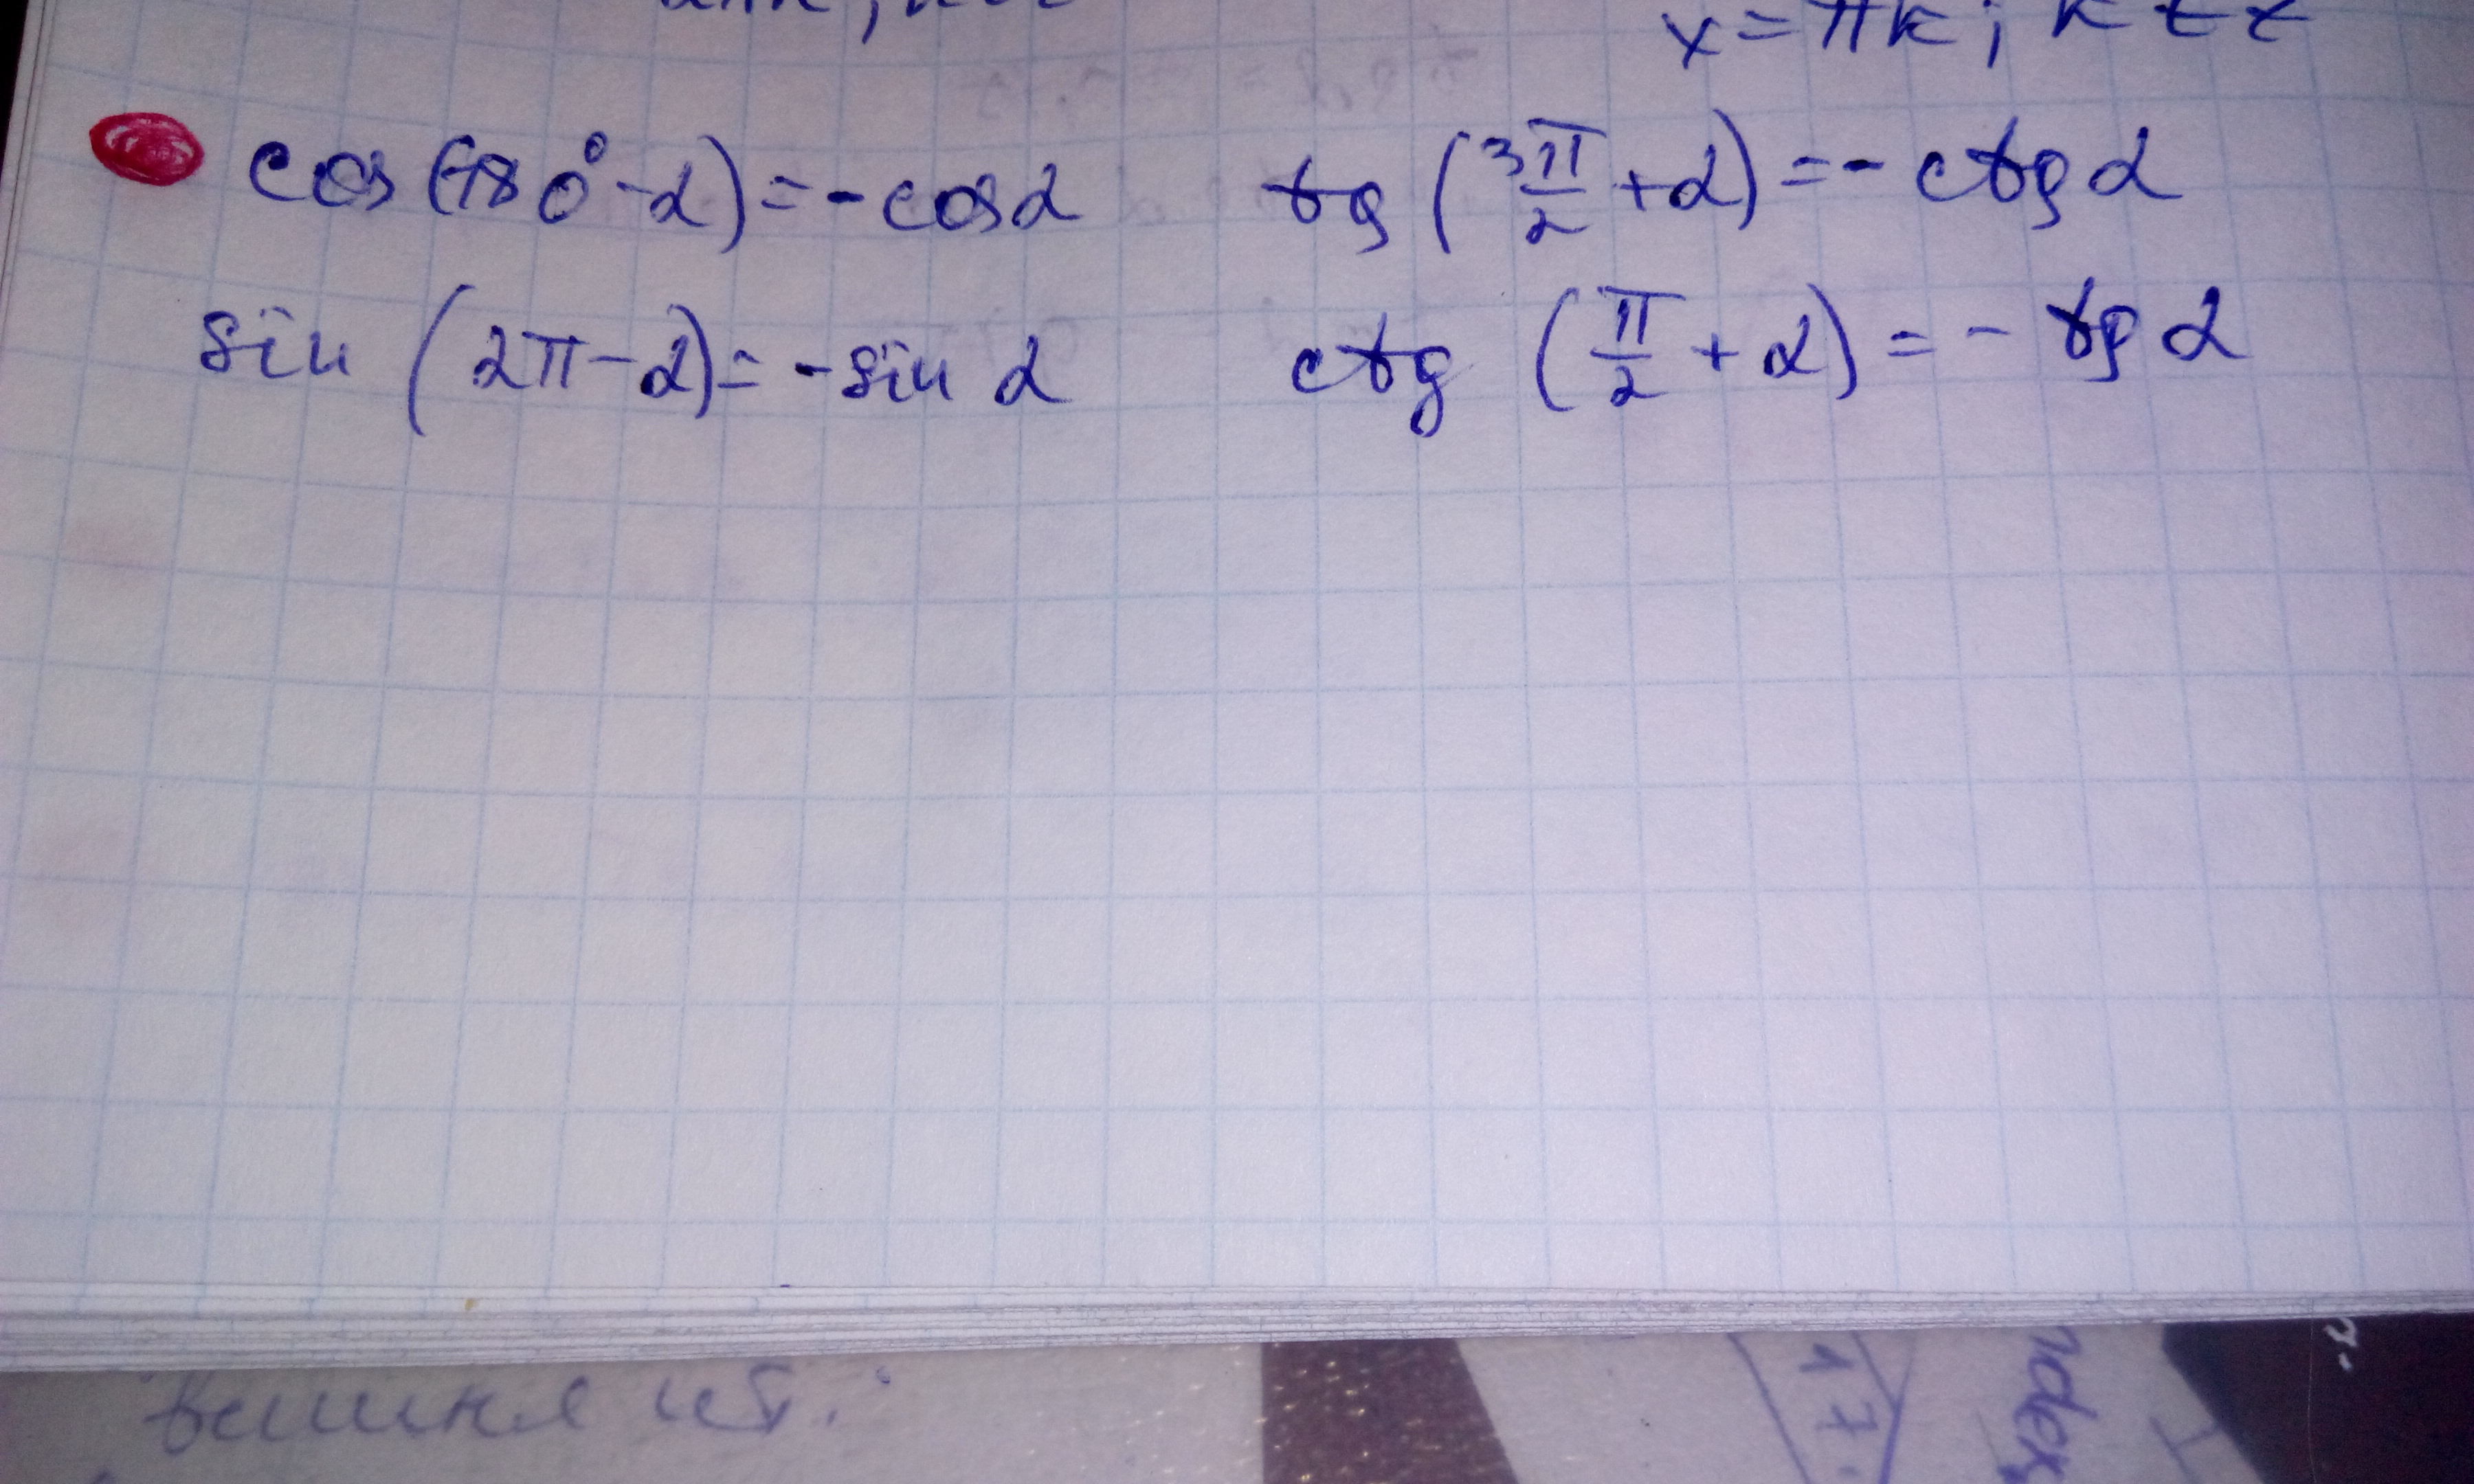 x = πk; k ∈ z
cos (180° - α) = - cos α tg (3π/2 + α) = - ctg α
sin (2π - α) = - sin α ctg (π/2 + α) = - tg α
17.